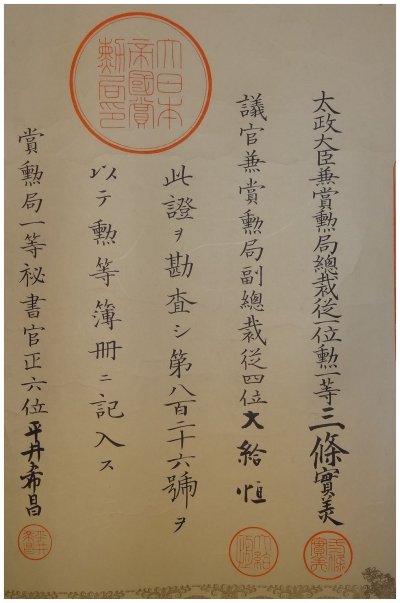 太政大臣兼賞勲局總裁從一位勲一等三條實美
議官兼賞勲局副總裁從四位大給恒
此證ヲ勘査シ第八百二十六號ヲ
以テ勲等簿册ニ記入ス
賞勲局一等祕書官正六位平井希昌
大日本
帝國賞
勲局印